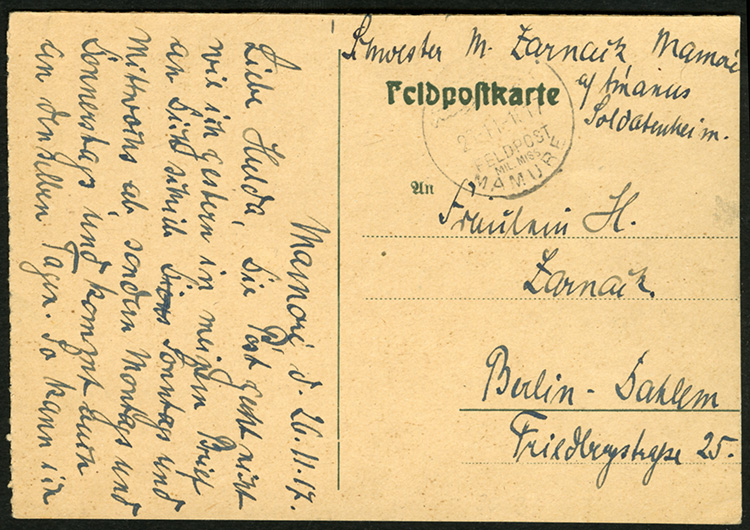 Schwester M. Zarnack Mamoré
a/ Amanus
Soldatenheim.
Feldpostkarte
FELDPOST
MIL. MISS.
MAMURE
An
Fräulein H.
Zarnack.
Berlin-Dahlem
Friedbergstraße 25.
Mamoré, d. 26.11.17.
Liebe Hulda, Die Post geht nicht
wie ich gestern in meinem Brief
an Dich schrieb Sonntags und
Mittwochs ab sondern Montags und
Donnerstags und kommt auch
an denselben Tagen. So kann ich